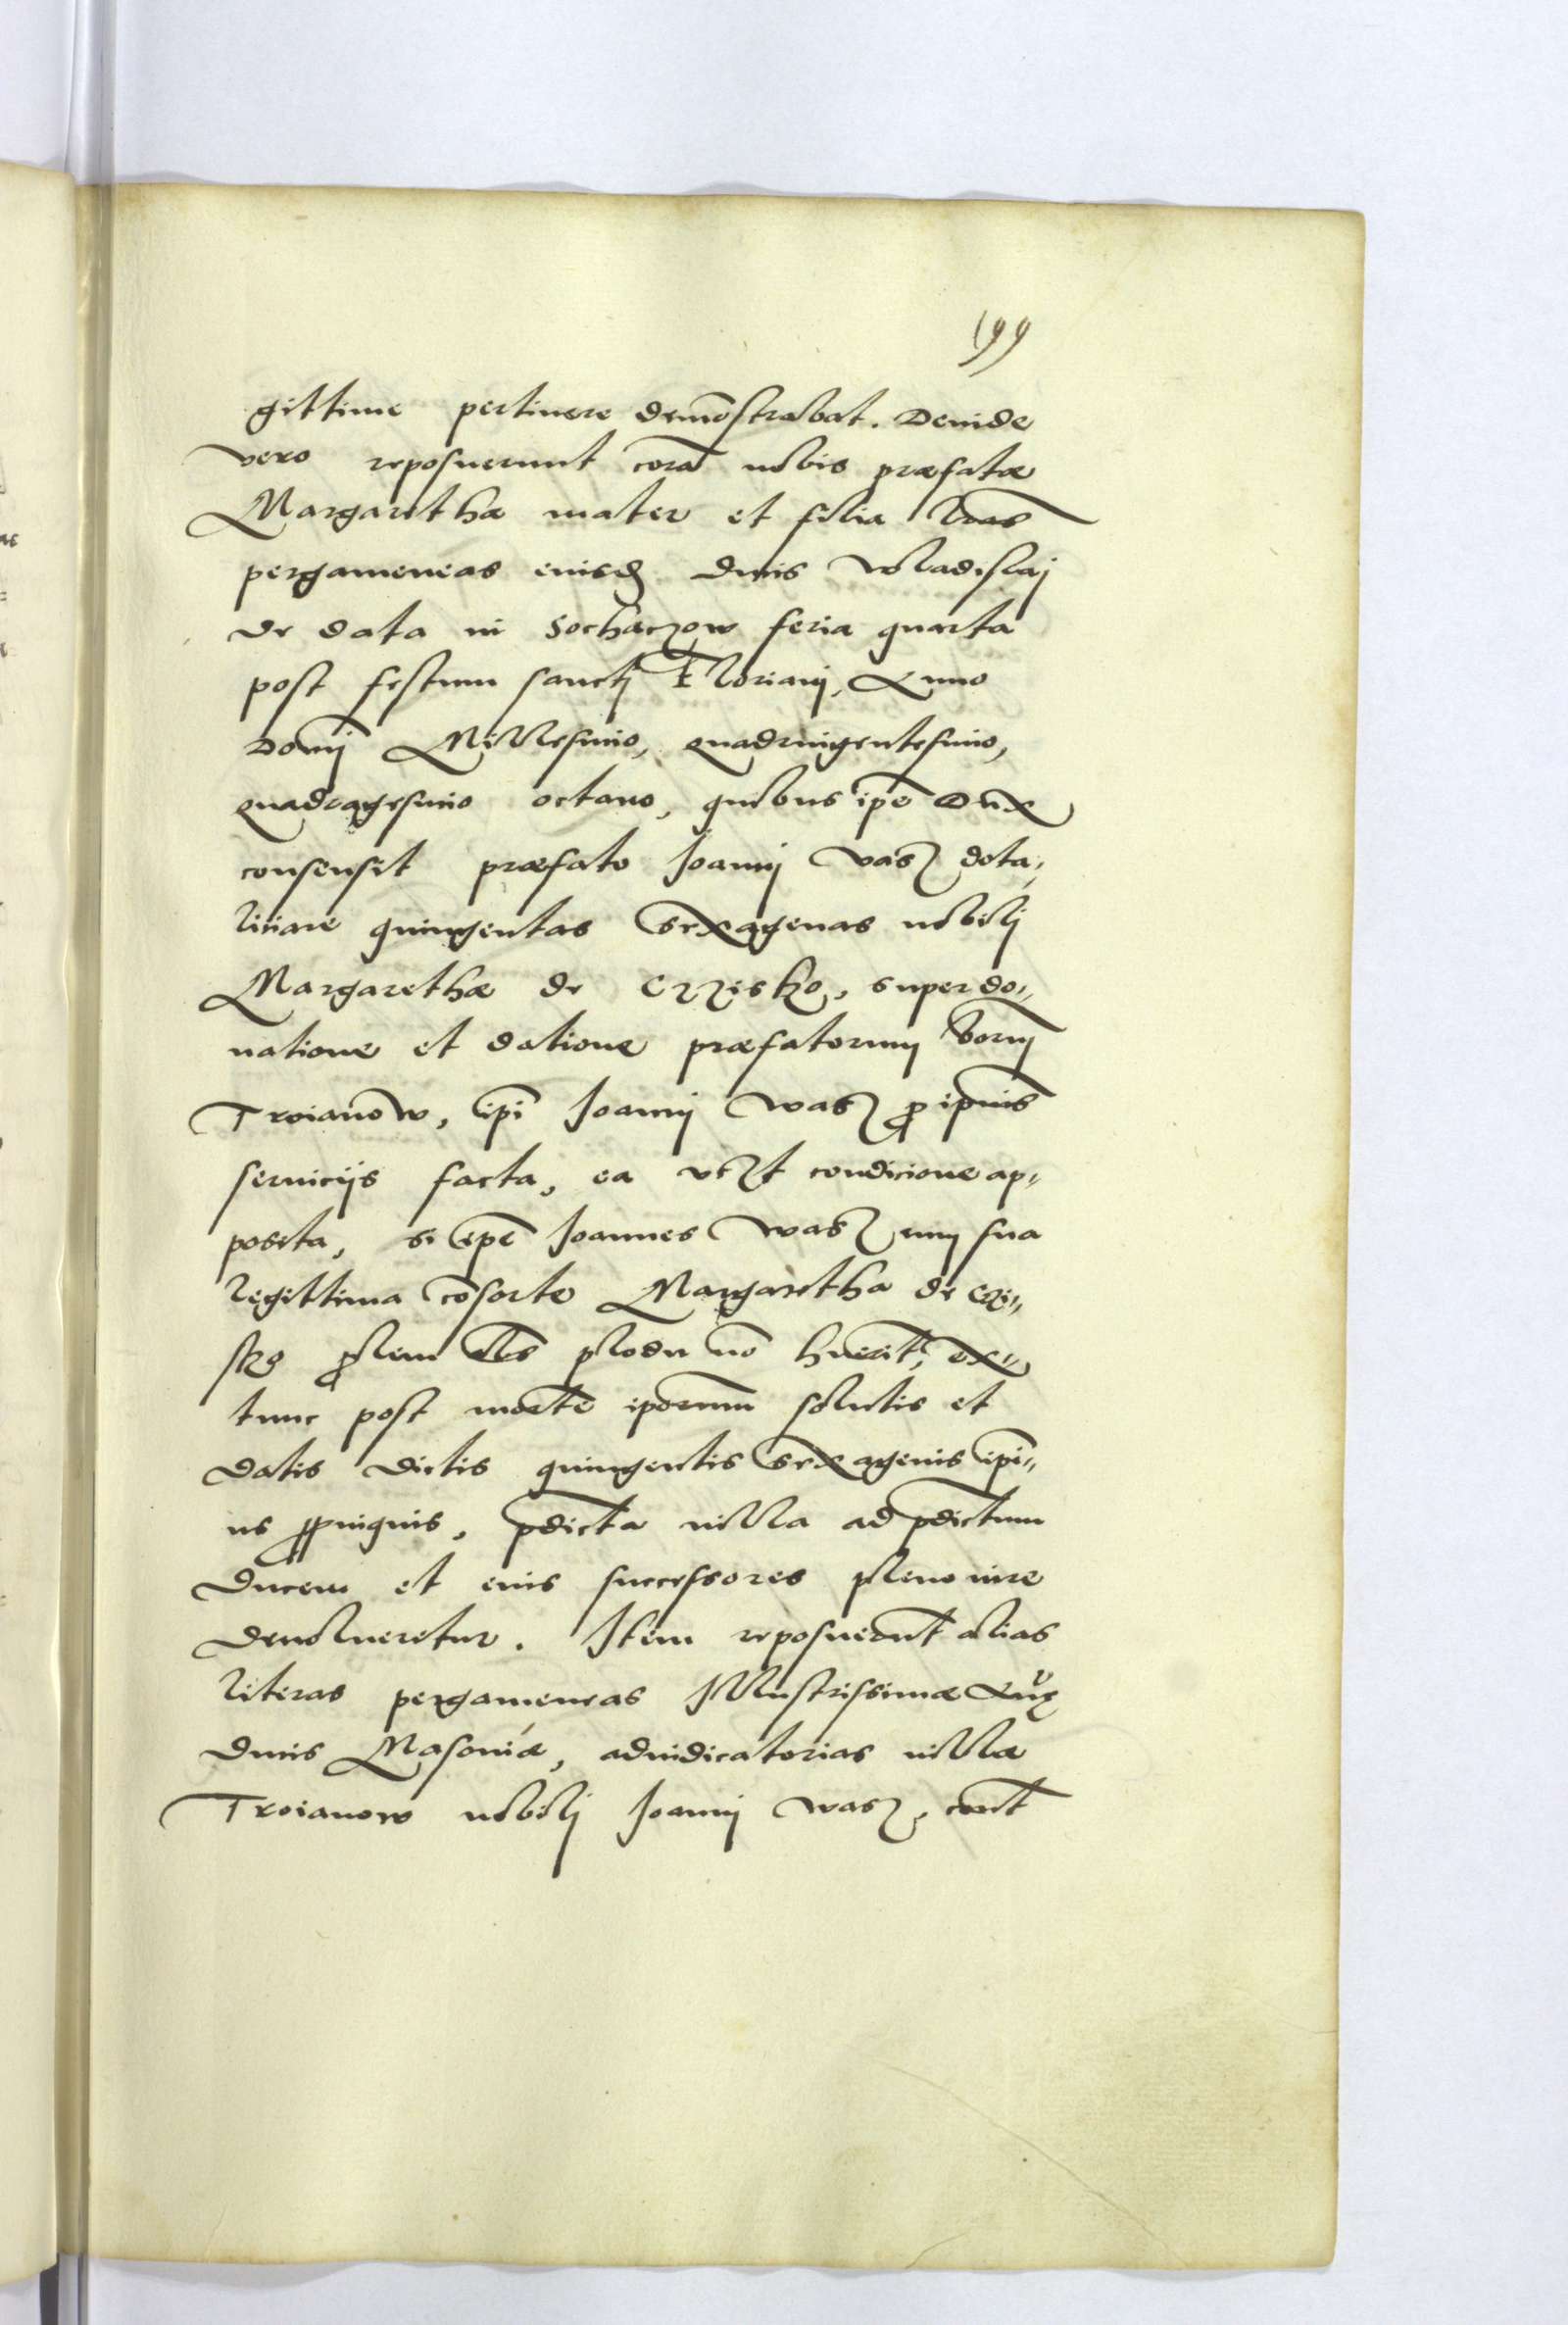 199
gittime pertinere demōstrabat. Deinde
vero reposuerunt corā nobis præfatæ
Margarethæ mater et filia l̄ras
pergameneas eiusdē Ducis Wladislaj
de data in Sochaczow feria quarta
post festum sanctj Florianj, Anno
Domj Millesimo, quadringentesimo,
quadragesimo octauo, quibus ip̄e Dux
consensit præfato Joannj Wasz dota,,
litiare quingentas sexagenas nobilj
Margarethæ de Czzisko, super do,,
natione et datione præfatorum bonorū
Troianow, ip̄i Joannj Wasz pro ip̄ius
seruicijs facta, ea vcz̄t condicione ap,,
posita, si ip̄e Joannes Wasz cum sua
legittima cōsorte Margaretha de Czi,,
sko prolem als plodu nō huerit, ex,,
tunc post mortē ip̄orum solutis et
datis dictis quingentis sexagenis ip̄i,,
us propinquis, p̄dicta villa ad p̄dictum
Ducem et eius successores pleno iure
deuolueretur. Item reposuerūt alias
literas pergameneas Illustrissimæ Annę
Ducis Masouiæ, adiudicatorias villæ
Troianow nobilj Joannj Wasz, cont̄